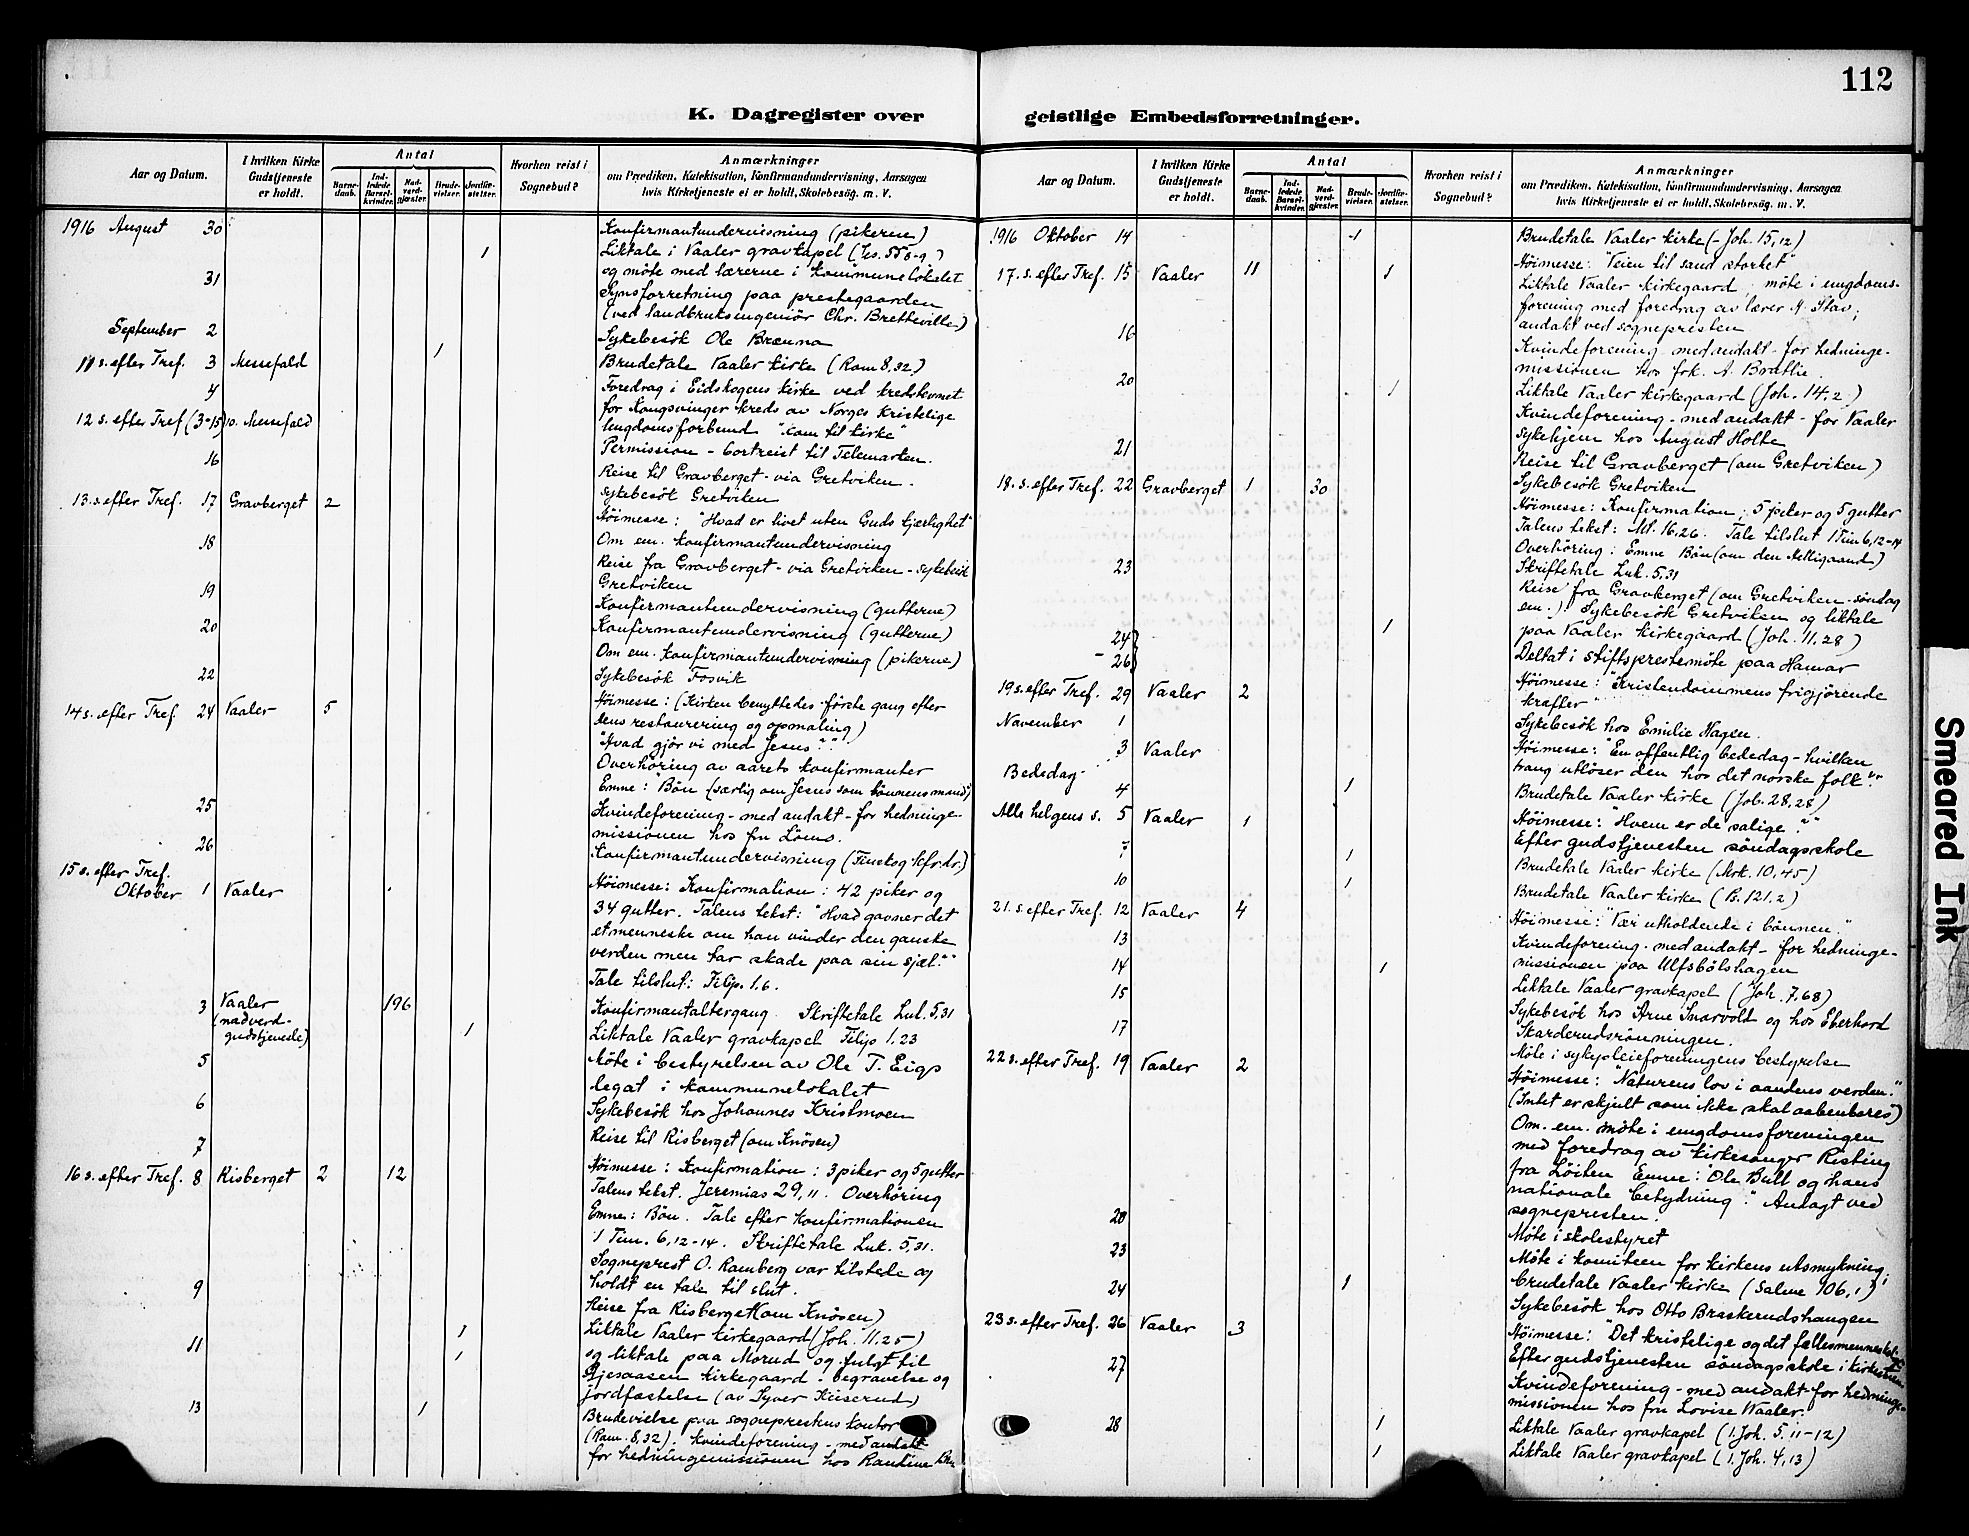 112
K. Dagregister over geistlige Embedsforretninger.
Aar og Datum.
I hvilken Kirke Gudstjeneste er holdt.
Antal
Barnedaab.
Indledede Barselkvinder.
Nadverdgjæster.
Brudevielser.
Jordfæstelser.
Hvorhen reist i Sognebud?
Anmærkninger
om Prædiken, Katekisation, Konfirmandundervisning, Aarsagen
hvis Kirketjeneste ei er holdt, Skolebesøg. m. V.
1916 August 30 Konfirmantundervisning (pikerne)
1 Liktale i Vaaler gravkapel (Jes. 55 8-9)
og møte med lærerne i kommunelokalet
31 Synsforretning paa prestegaarden
(ved landbruksingeniør Chr. Bretteville)
September 2 Sykebesøk Ole Brænna
1 Brudetale Vaaler kirke (Rom 8,32)
11 s. efter Tref. 3 Messefald
Foredrag i Eidskogens kirke ved kredsstevnet
4 for Kongsvinger kreds av Norges Kristelige
Ungdomsforbund "Kom til kirke"
12 s. efter Tref (3-15) 10. Messefald
Permission - bortreist til Telemarken.
16 Reise til Gravberget - via Gretviken.
Sykebesøk Gretviken
13. s. efter Tref. 17 Gravberget 2
Høimesse: "Hvad er livet uten Guds kjerlighet"
Om em. konfirmantundervisning
18 Reise fra Gravberget - via Gretviken - sykebesøk
Gretviken
19 Konfirmantundervisning (gutterne)
20 Konfirmantundervisning (gutterne)
Om em. Konfirmantundervisning (pikerne)
22 Sykebesøk Fosvik
14 s. efter Tref. 24 Vaaler 5 Høimesse: (Kirken benyttedes første gang efter
dens restaurering og opmaling)
"Hvad gjør vi med Jesus?"
Overhøring av aarets konfirmanter
Emne: Bøn (særlig om Jesus som bønnens mand)
25 Kvindeforening - med andakt - for hedninge-
missionen hos fru Løms.
26 Konfirmantundervisning (Finskog kfr.dr.)
15 s. efter Tref.
Oktober 1 Vaaler Høimesse: Konfirmation: 42 piker og
34 gutter. Talens tekst: "Hvad gavner det
et menneske om han vinder den ganske
verden men tar skade paa sin sjæl?"
Tale tilslut: Filip. 1.6.
3 Vaaler (nadverdgudstjeneste) 196 Konfirmantaltergang Skriftetale Luk. 5,31
1 Liktale Vaaler gravkapel Filip 1.23
5 Møte i bestyrelsen av Ole T. Eigs
legat i kommunelokalet
6 Sykebesøk hos Johannes Kristmoen
7 Reise til Risberget (om Knøsen)
16 s. efter Tref. 8 Risberget 2 12 Høimesse: Konfirmation: 3 piker og 5 gutter
Talens tekst. Jeremias 29,11. Overhøring
Emne: Bøn. Tale efter konfirmationen
1 Tim. 6,12-14. Skriftetale Luk. 5,31.
Sogneprest O. Ramberg var tilstede og
holdt en tale til slut.
9 Reise fra Risberget (om Knøsen)
1 Liktale Vaaler kirkegaard (Joh. 11.25)
11 1 og liktale paa Morud og fulgt til
Gjesaasen kirkegaard - begravelse og
jordfæstelse (av Syver Kiserud)
13 1 Brudevielse paa sogneprestens kontor
(Rom. 8,32). Kvindeforening - med andakt
for hedningemissionen hos Randine
Aar og Datum.
I hvilken Kirke Gudstjeneste er holdt.
Antal
Barnedaab.
Indledede Barselkvinder.
Nadverdgjæster.
Brudevielser.
Jordfæstelser.
Hvorhen reist i Sognebud?
Anmærkninger
om Prædiken, Katekisation, Konfirmandundervisning, Aarsagen
hvis Kirketjeneste ei er holdt, Skolebesøg. m. V.
1916 Oktober 14 1 Brudetale Vaaler kirke (Joh. 15,12)
17. s. efter Tref. 15 Vaaler 11 1 Høimesse: "Veien til sand storhet"
Liktale Vaaler kirkegaard; møte i ungdoms-
forening med foredrag av lærer M. Stav;
andakt ved sognepresten
16 Kvindeforening - med andakt - for hedninge-
missionen hos frk. A. Brattlie.
20 1 Liktale Vaaler kirkegaard (Joh. 14.2)
Kvindeforening - med andakt - for Vaaler
sykehjem hos August Holte
21 Reise til Gravberget (om Gretviken)
Sykebesøk Gretviken
18. s. efter Tref. 22 Gravberget 1 30 Høimesse: Konfirmation; 5 piker og 5 gutter
Talens tekst: Mt. 16.26. Tale tilslut 1 Tim 6,12-14
Overhøring: Emne Bøn (om den Helligaand)
Skriftetale Luk. 5.31
23 Reise fra Gravberget (om Gretviken - søndag
em.). Sykebesøk Gretviken og liktale
1 paa Vaaler kirkegaard (Joh. 11.28)
24
- 26 Deltat i stiftsprestemøte paa Hamar
19 s. efter Tref. 29 Vaaler 2 Høimesse: "Kristendommens frigjørende
krafter"
November 1 Sykebesøk hos Emilie Hagen.
3 Vaaler Høimesse: "En offentlig bededag - hvilken
Bededag trang utløser den hos det norske folk?"
4 1 Brudetale Vaaler kirke (Job. 28,28)
Alle helgens s. 5 Vaaler 1 Høimesse: "Hvem er de salige?"
Efter gudstjenesten søndagsskole
7 1 Brudetale Vaaler kirke (Mrk. 10,45)
10 1 Brudetale Vaaler kirke (Ps. 121.2)
21. s. efter Tref. 12 Vaaler 4 Høimesse: "Vær utholdende i bønnen."
13 Kvindeforening - med andakt - for hedninge-
missionen paa Ulfsbølshagen
14 1 Liktale Vaaler gravkapel (Joh. 7,68)
15 Sykebesøk hos Arne Snarvold og hos Eberhard
Skarderudsrønningen.
17 Møte i sykepleieforeningens bestyrelse
22 s. efter Tref. 19 Vaaler 2 Høimesse: "Naturens lov i aandens verden."
(Intet er skjult som ikke skal aabenbares)
Om. em. møte i ungdomsforeningen
med foredrag av kirkesanger Risting
fra Løiten Emne: "Ole Bull og hans
nationale betydning." Andagt ved
sognepresten.
20 Møte i skolestyret
23 Møte i komiteen for kirkens utsmykning;
24 1 brudetale Vaaler kirke (Salme 106,1)
Sykebesøk hos Otto Braskerudshaugen
23 s. efter Tref. 26 Vaaler 3 Høimesse: "Det kristelige og det fællesmenneskelige
Efter gudstjenesten søndagsskole i kirkestuen
27 Kvindeforening - med andakt for hedninge-
missionen hos fru Lovise Waaler.
28 1 Liktale Vaaler gravkapel (1. Joh. 5.11-12)
1 Liktale Vaaler gravkapel (1. Joh. 4,13)
Smeared Ink